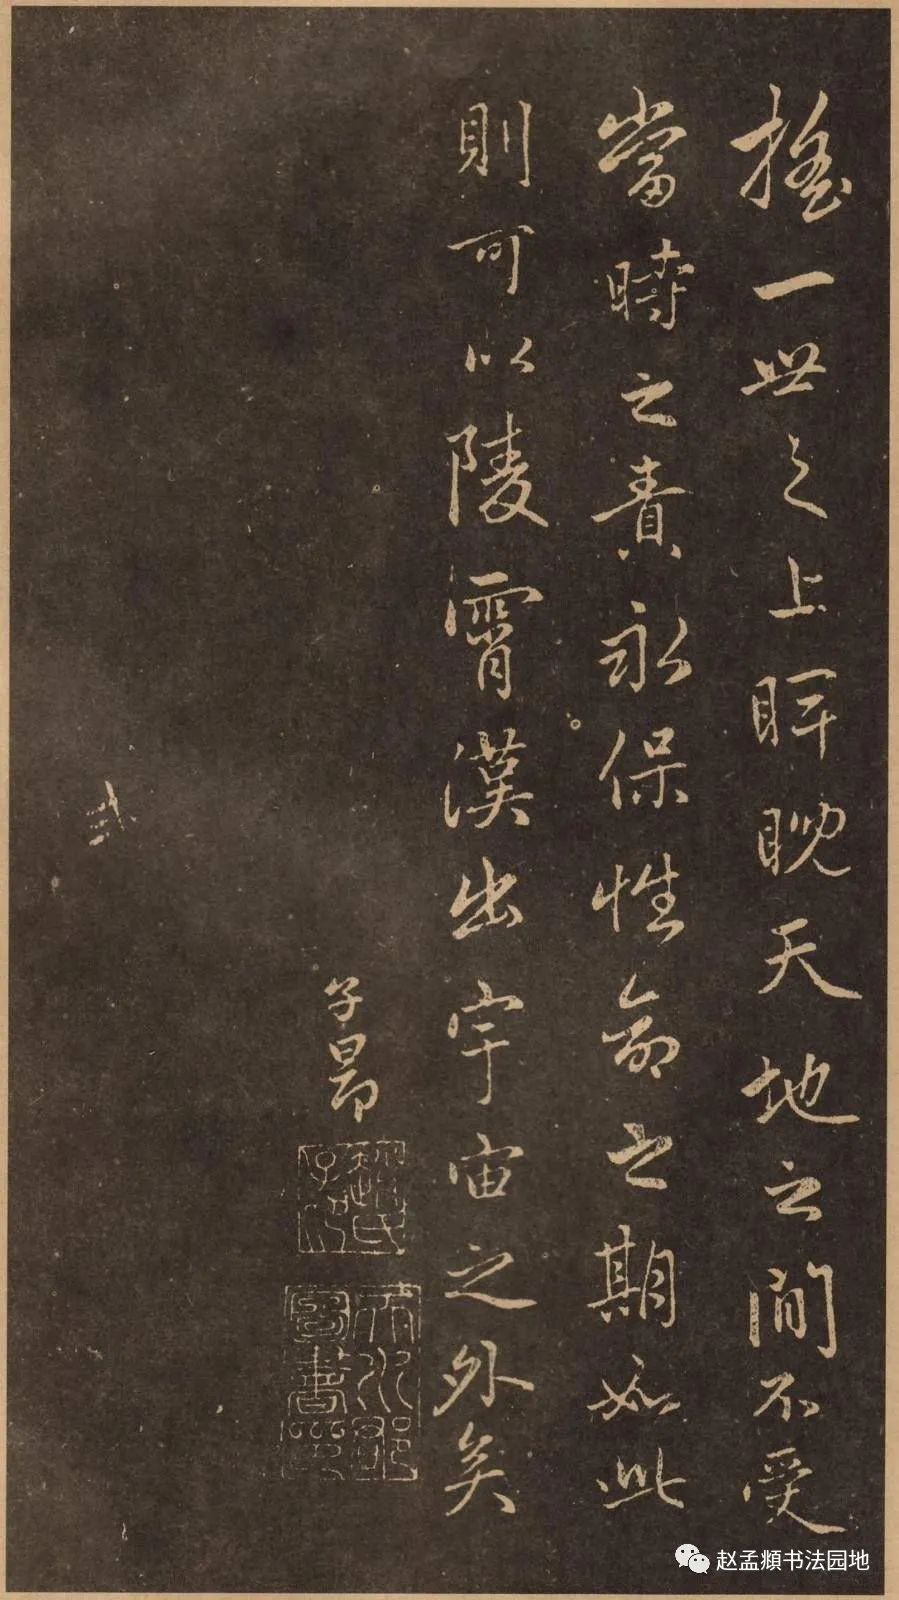 搖一世之上睥睨天地之間不受
當時之責永保性命之期如此
則可以陵霄漢出宇宙之外矣
子昂
趙氏子昂
天水郡圖書印
弍
赵孟頫书法园地